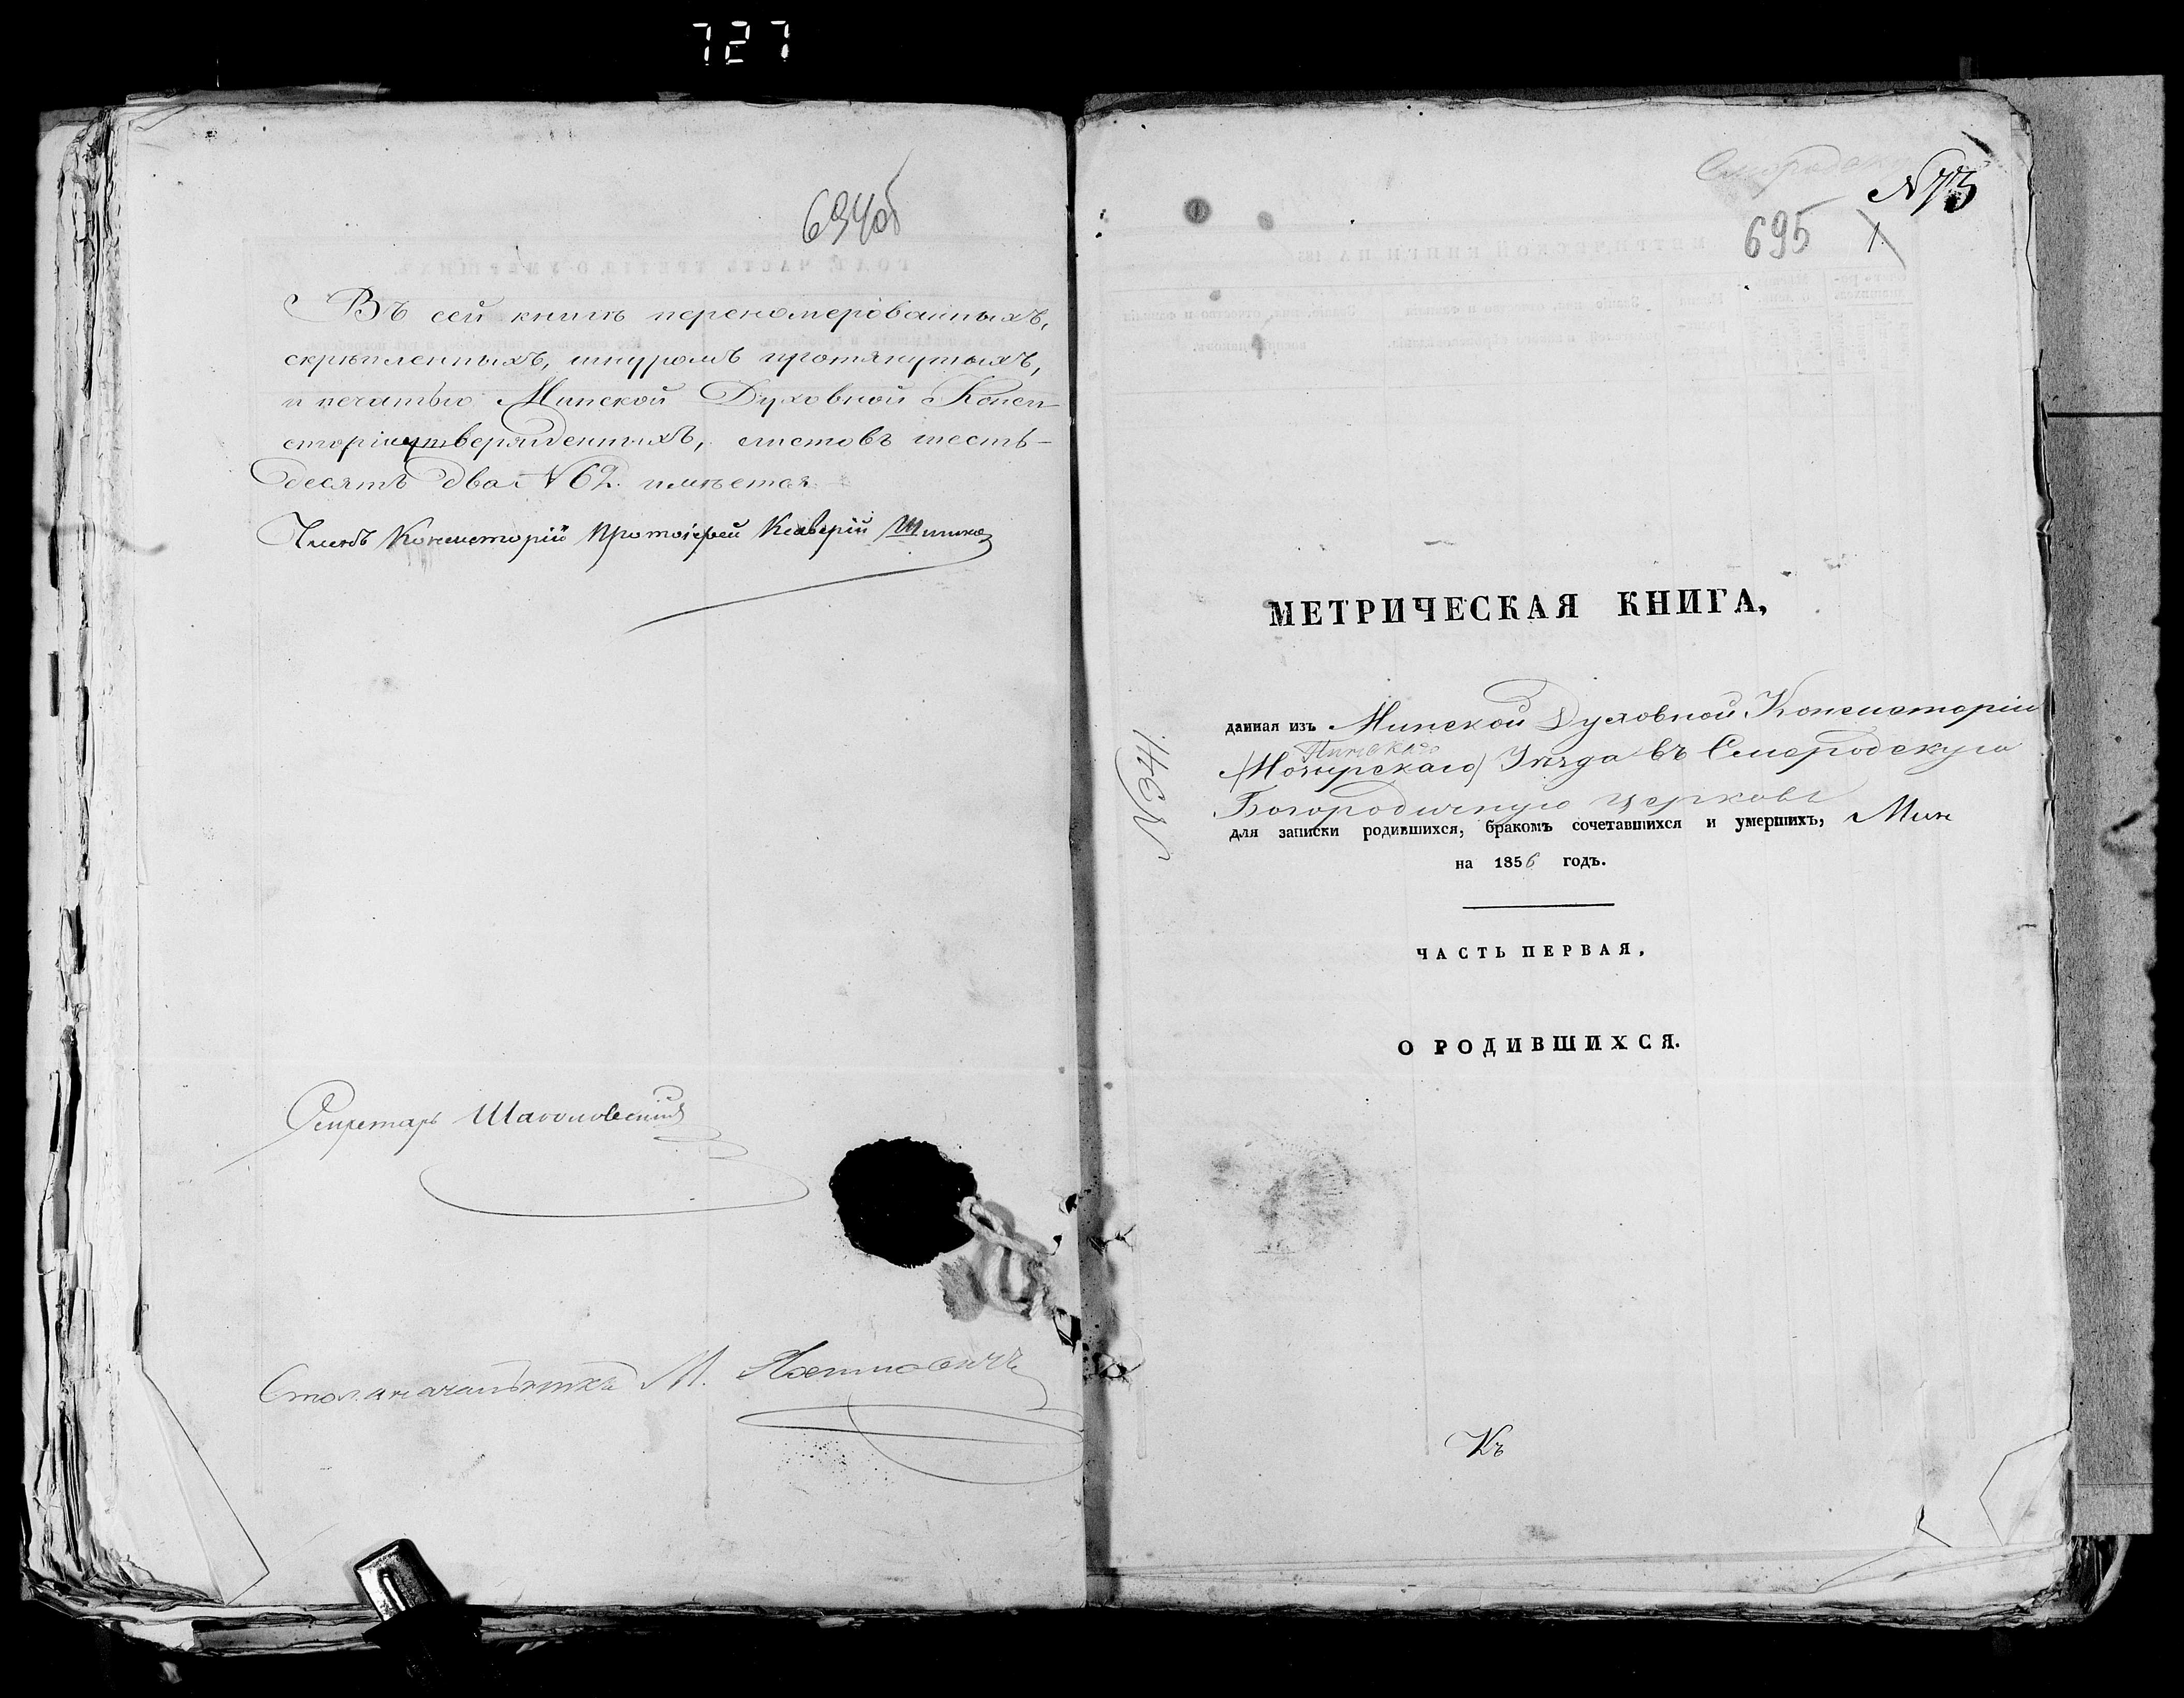 727
694об
Въ сей книгѣ переномерованныхъ,
скрѣпленныхъ, шнуромъ протянутыхъ,
и печатью Минской Духовной Конси-
сторіи утвержденныхъ, листовъ шесть-
десятъ два № 62. имѣется
Членъ Консисторіи Протоіерей Ксаверій
Секретарь
Столоначальникъ М.
№ 73
695 1
МЕТРИЧЕСКАЯ КНИГА,
данная изъ Минской Духовной Консисторіи
Пинскаго
(Мозырскаго) Уѣзда въ Смородскую
Богородичную церковь
для записки родившихся, бракомъ сочетавшихся и умершихъ, Мин
на 1856 годъ.
ЧАСТЬ ПЕРВАЯ,
О РОДИВШИХСЯ.
Къ